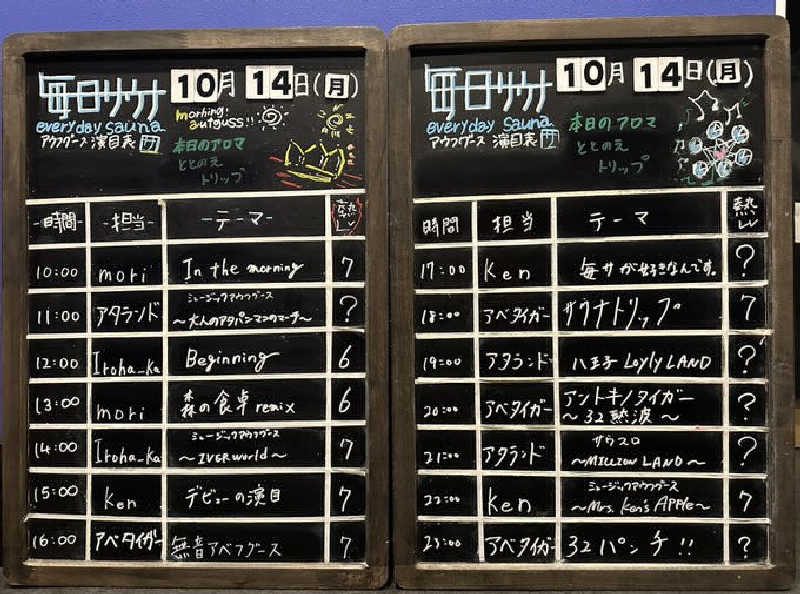 毎日サウナ 10月14日(月)
everyday sauna
アウフグース 演目表
morning autguss!!
本日のアロマ
ととのえ
トリップ
時間 担当 テーマ 熱レベ
10:00 mori In the morning 7
11:00 アタランド ミュージックアウフグース ～大人のアタパンマンのマーチ～ ?
12:00 Iroha_ka Beginning 6
13:00 mori 森の食卓 remix 6
14:00 Iroha_ka ミュージックアウフグース ～IVERworld～ 7
15:00 ken デビューの演目 7
16:00 アベタイガー 無音アベフグース 7
毎日サウナ 10月14日(月)
everyday sauna
アウフグース 演目表
本日のアロマ
ととのえ
トリップ
時間 担当 テーマ 熱レベ
17:00 Ken 毎サが好きなんです。 ?
18:00 アベタイガー サウナトリップ 7
19:00 アタランド 八王子 Loyly LAND ?
20:00 アベタイガー アントキノタイガー ～32熱波～ ?
21:00 アタランド サウスロ ～MILLION LAND～ ?
22:00 ken ミュージックアウフグース ～Mrs. Ken's APPle～ 7
23:00 アベタイガー 32パンチ!! ?